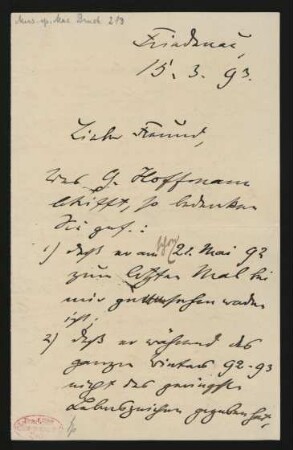 Mus. ep. Max Bruch 219
Friedenau,
15. 3. 93.
Lieber Freund,
Was G. Hoffmann
betrifft, so bedenken
Sie gef.:
1) daß er am (schon) 21. Mai 92
zum letzten Mal bei
mir gesehen worden
ist;
2) daß er während des
ganzen Winters 92-93
nicht das geringste
Lebenszeichen gegeben hat,